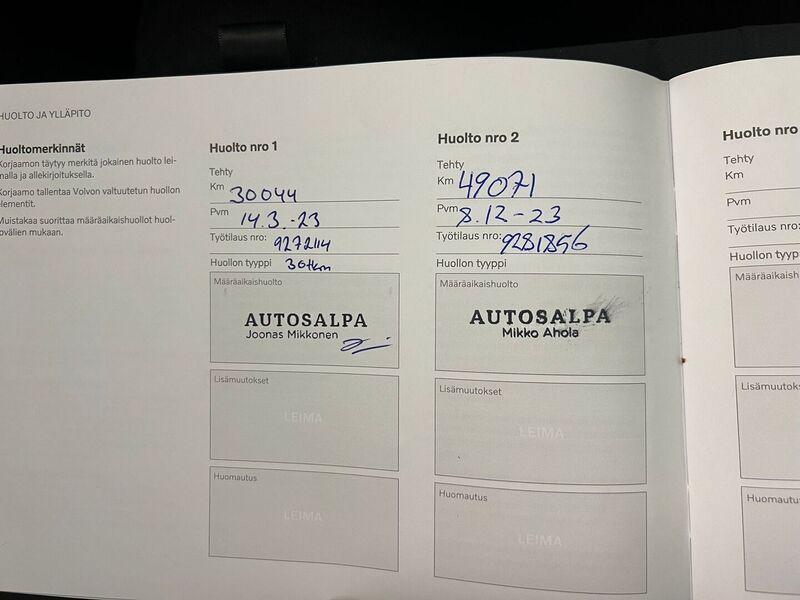 HUOLTO JA YLLÄPITO
Huoltomerkinnät
Korjaamon täytyy merkitä jokainen huolto lei-
malla ja allekirjoituksella.
Korjaamo tallentaa Volvon valtuutetun huollon
elementit.
Muistakaa suorittaa määräaikaishuollot huol-
tovälien mukaan.
Huolto nro 1
Tehty
Km 30044
Pvm 14.3.-23
Työtilaus nro: 9272114
Huollon tyyppi 30tkm
Määräaikaishuolto
AUTOSALPA
Joonas Mikkonen
Lisämuutokset
LEIMA
Huomautus
LEIMA
Huolto nro 2
Tehty
Km 49071
Pvm 8.12-23
Työtilaus nro: 9281856
Huollon tyyppi
Määräaikaishuolto
AUTOSALPA
Mikko Ahola
Lisämuutokset
LEIMA
Huomautus
LEIMA
Huolto nro
Tehty
Km
Pvm
Työtilaus nro:
Huollon tyyppi
Määräaikaish
Lisämuutoks
Huomautu